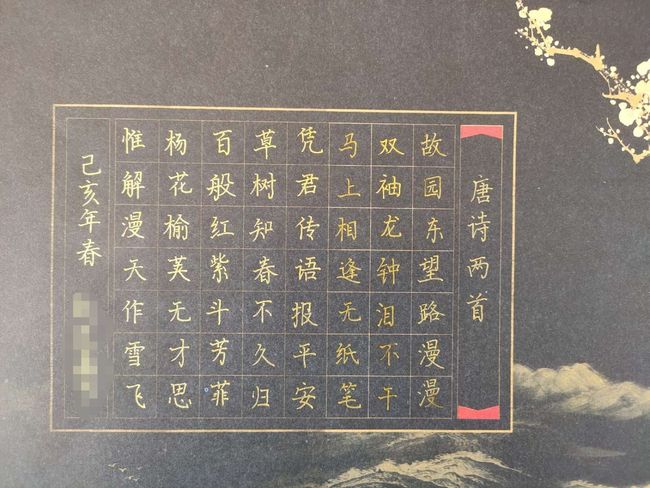 唐诗两首
故园东望路漫漫
双袖龙钟泪不干
马上相逢无纸笔
凭君传语报平安
草树知春不久归
百般红紫斗芳菲
杨花榆荚无才思
惟解漫天作雪飞
己亥年春